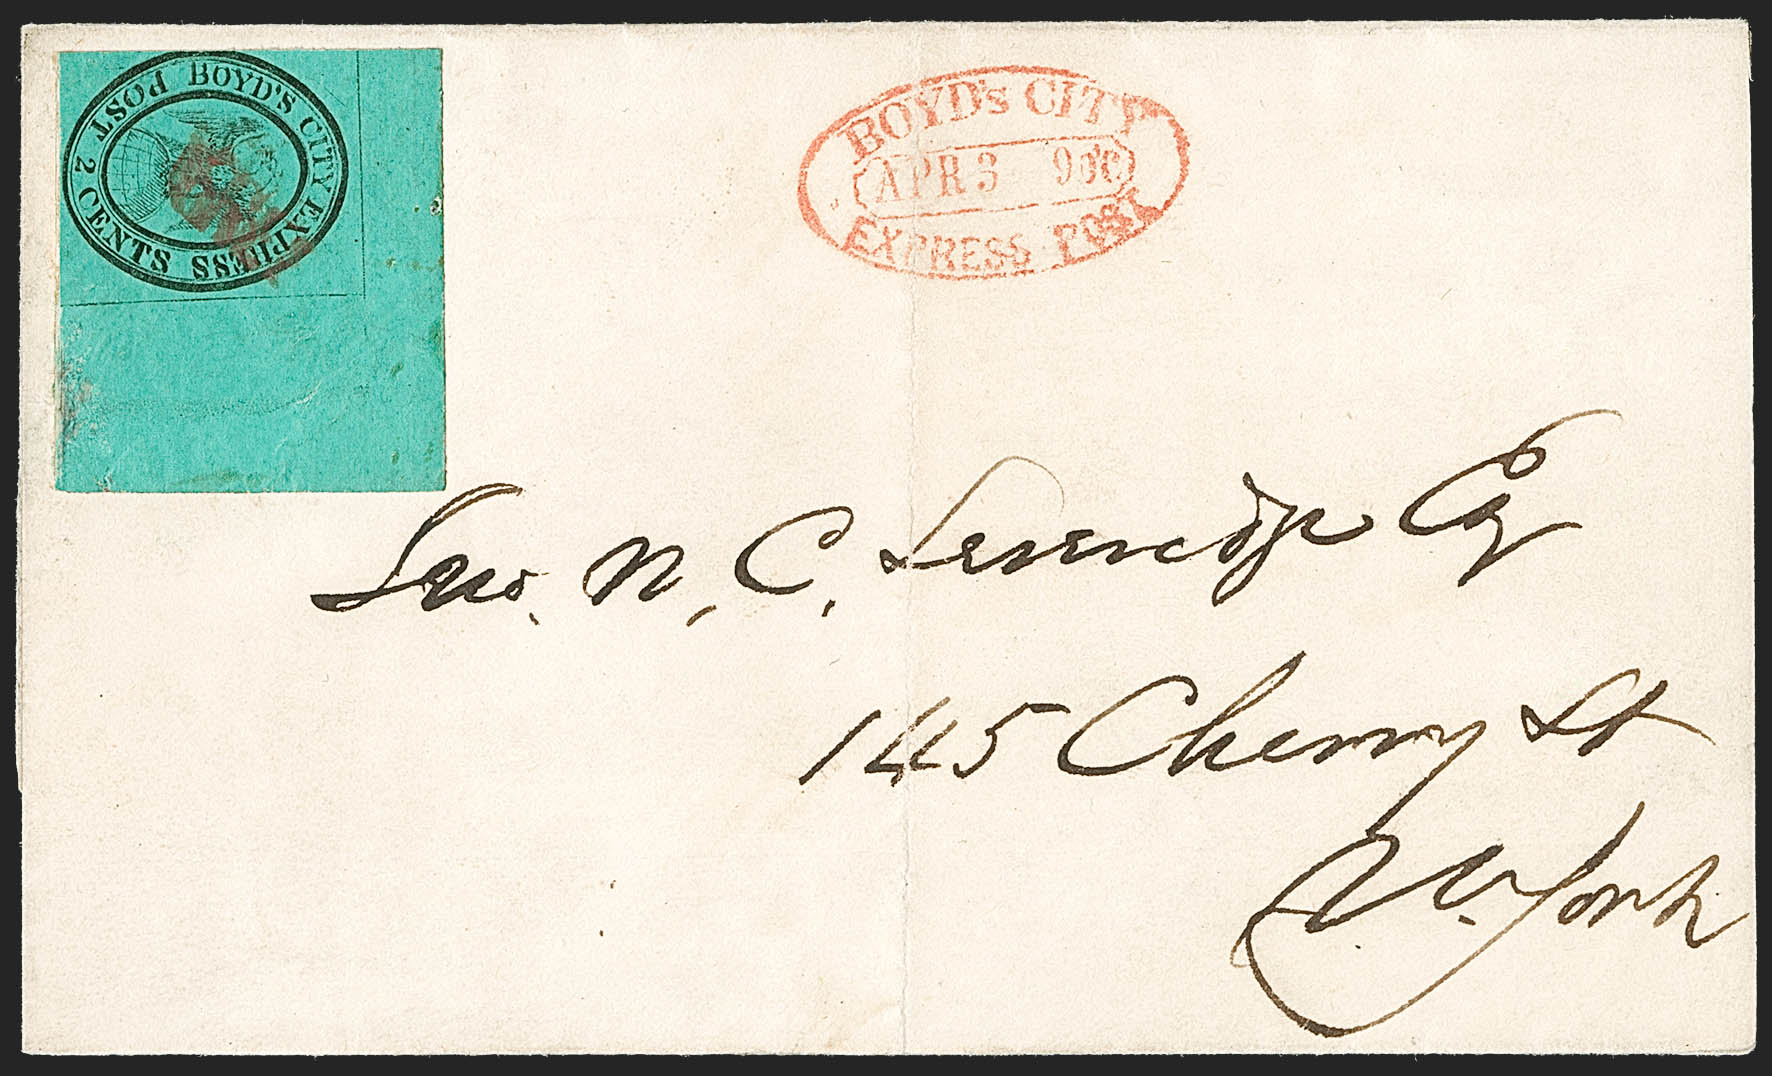 BOYD'S CITY EXPRESS POST
2 CENTS
BOYD's CITY
APR 3 9 O'C
EXPRESS POST
N. C.
145 Cherry St
N. York